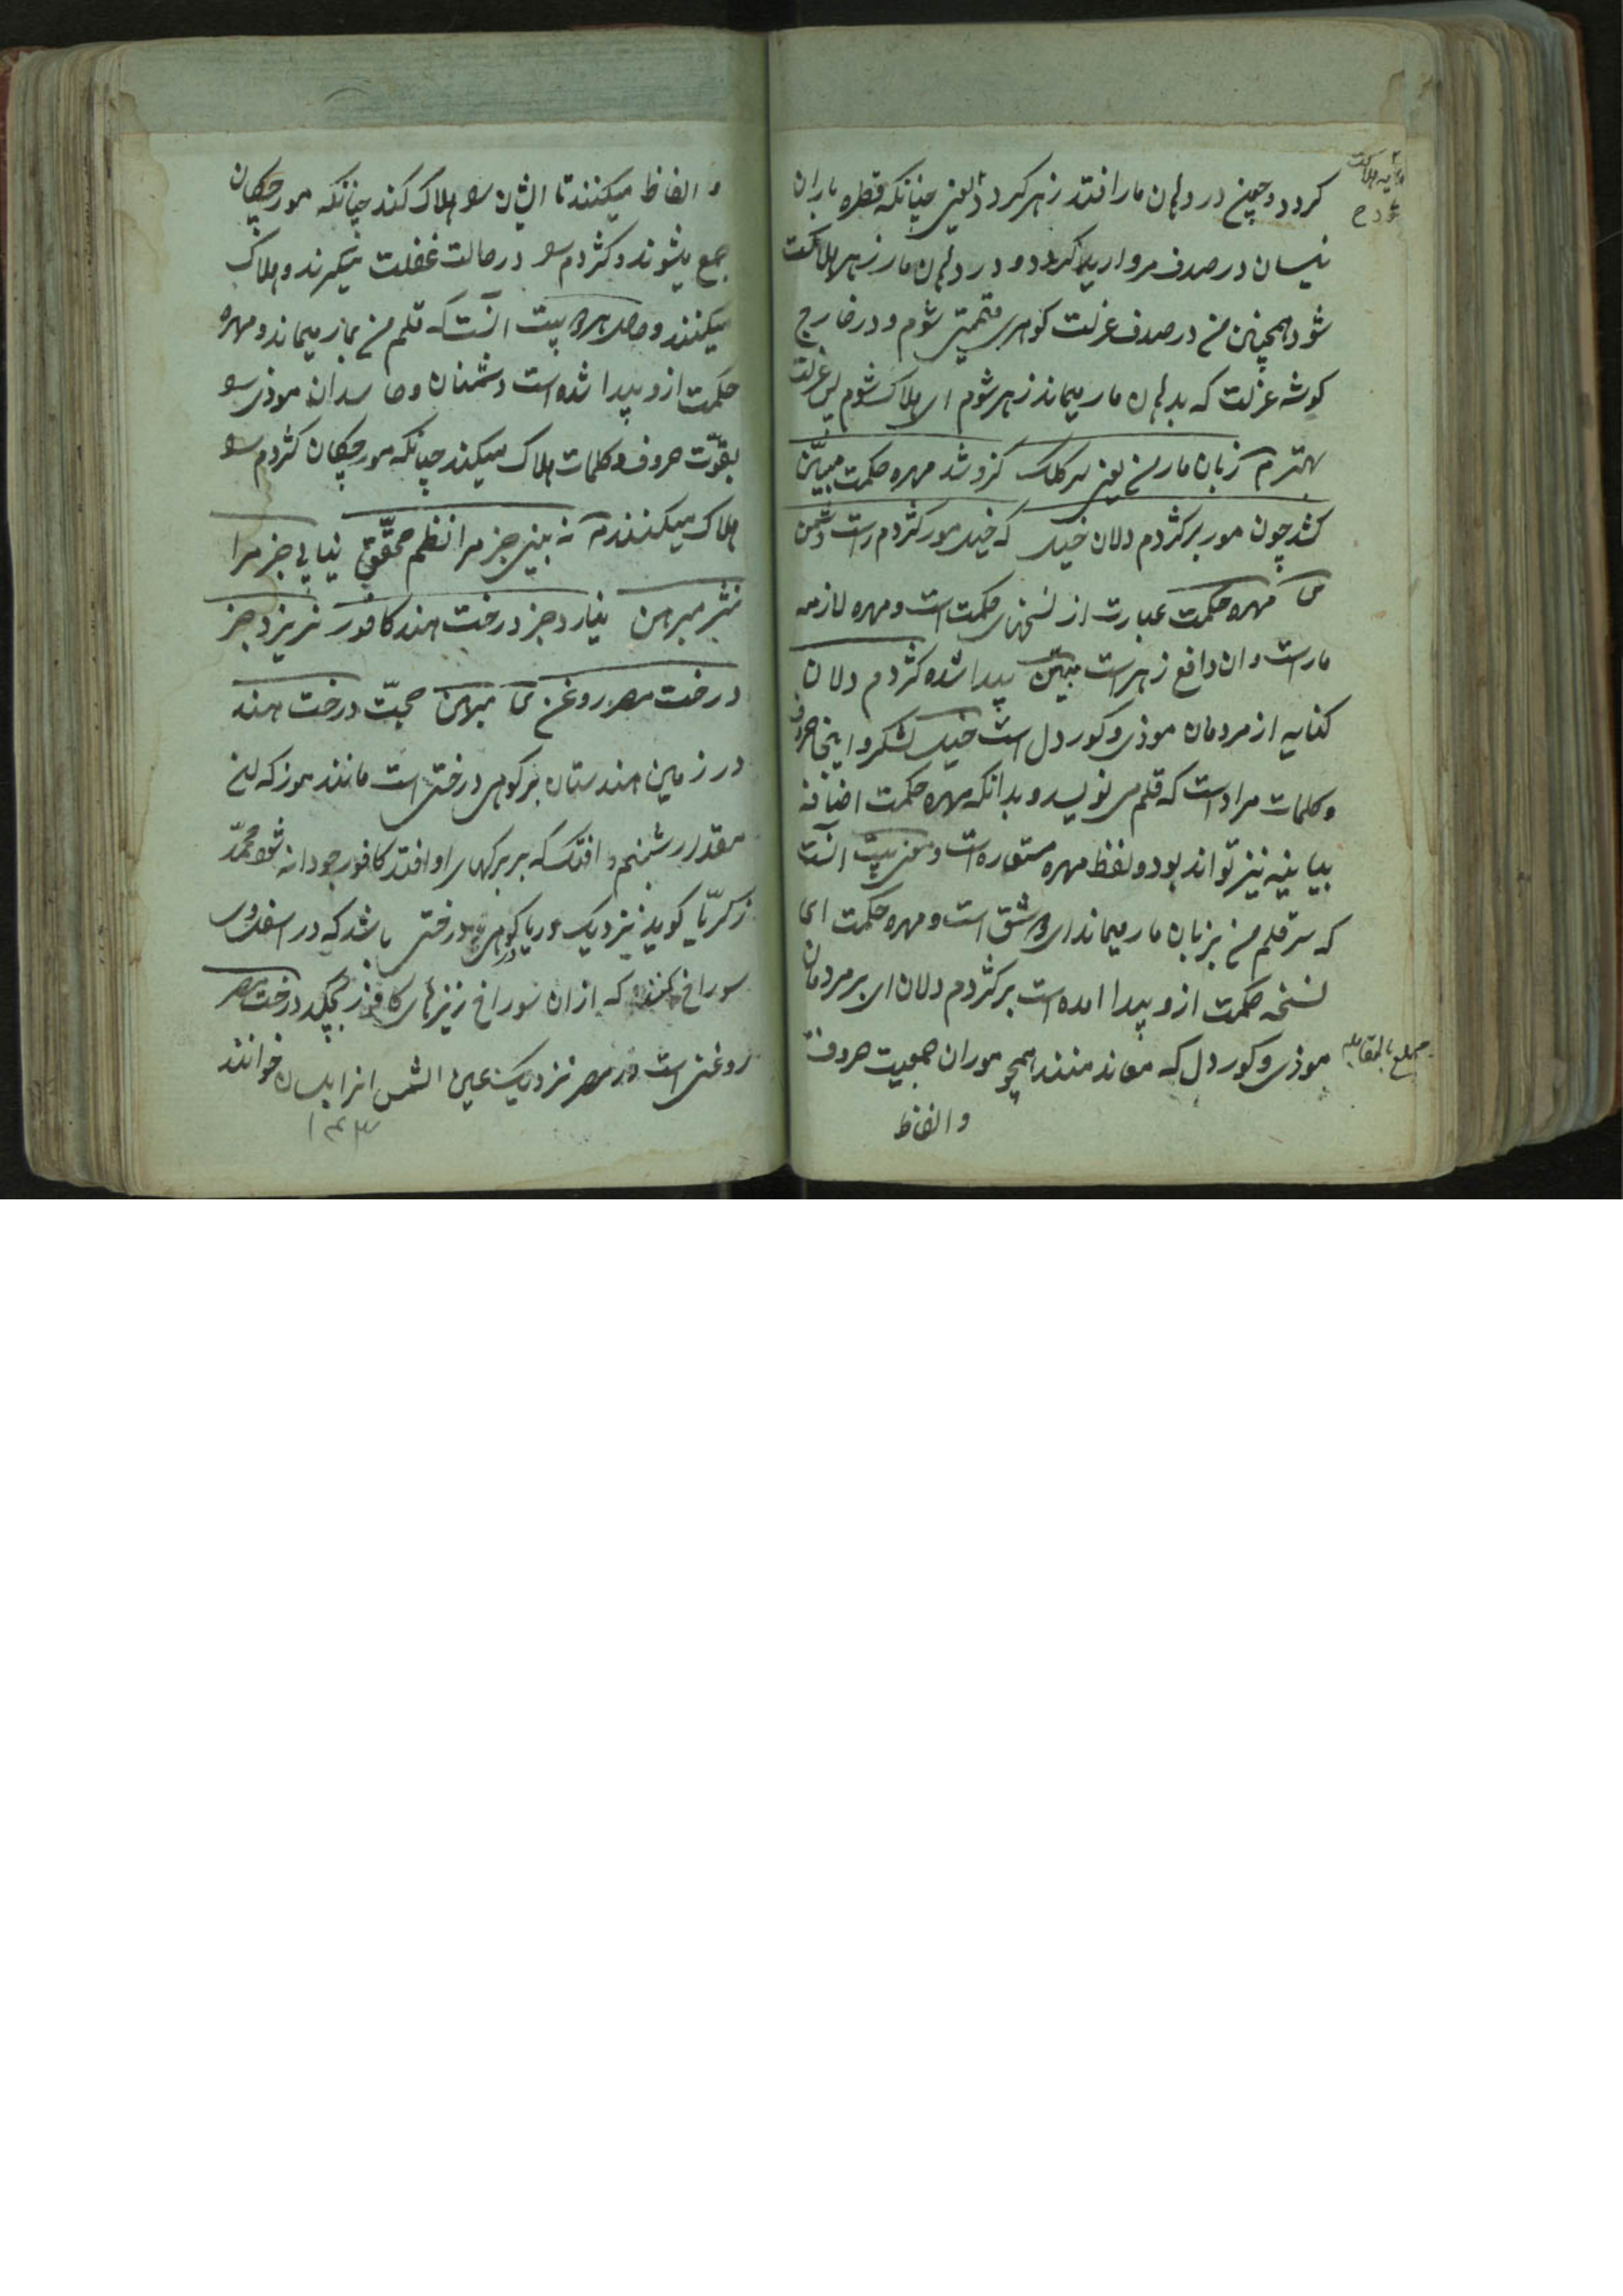 گردد و چون در دهان مار افتد زهر گردد یعنی چنانکه قطره باران
نیسان در صدف مروارید گردد و در دهان مار زهر هلاکت
شود همچنین من در صدف عزلت گوهری قیمتی شوم و در خارج
گوشه عزلت که بدهان مار میماند زهر شوم ای هلاک شوم پس عزلت
بهترم زبان مار من یعنی سر کلک کزو شد مهره حکمت مبیّن
کشد چون مور بر کژدم دلان خیل که خیل مور کژدم راست دشمن
ش مهره حکمت عبارت از نسخهای حکمت است و مهره لازمه
مارست و ان دافع زهر است مبیّن پیدا شده کژدم دلان
کنایه از مردمان موذی و کور دل است خیل لشکر و اینجا حروف
و کلمات مراد است که قلم می نویسد و بدانکه مهره حکمت اضافه
بیانیه نیز تواند بود و لفظ مهره مستعاره است و معنی بیت انست
که سر قلم من بزبان مار میماند ای شق است و مهره حکمت ای
نسخه حکمت ازو پیدا امده است بر کژدم دلان ای بر مردمان
موذی و کور دل که معاند منند همچو موران جمعیت حروف
والفاظ
شود ح
بلغ بالمقابله
و الفاظ میکنند تا ایشان را هلاک کند چنانکه مورچکان
جمع میشوند و کژدم را در حالت غفلت میگیرند و هلاک
میکنند و حاصل هر دو بیت انست که قلم من بمار میماند و مهره
حکمت ازو پیدا شده است دشمنان و حاسدان موذی را
بقوّت حروف و کلمات هلاک میکند چنانکه مورچکان کژدم را
هلاک میکنند م نه بینی جز مرا نظم محقّق نیابی جز مرا
نثر مبرهن نیارد جز درخت هند کافور نریزد جز
درخت مصر روغن ش مبرهن حجّت درخت هند
در زمین هندستان بر کوهی درختی است مانند موز که
مقدار شبنم افتد که بر برکهای او افتد کافور جودانه شود محمّد
زکریّا گوید نزدیک دریا کوهی درختی باشد که در اسفل وی
سوراخ کنند که ازان سوراخ ریزهای کافور بچکد درخت مصر
روغنی است در مصر نزدیک عین الشمس انرا بلسان خوانند
۱۴۳